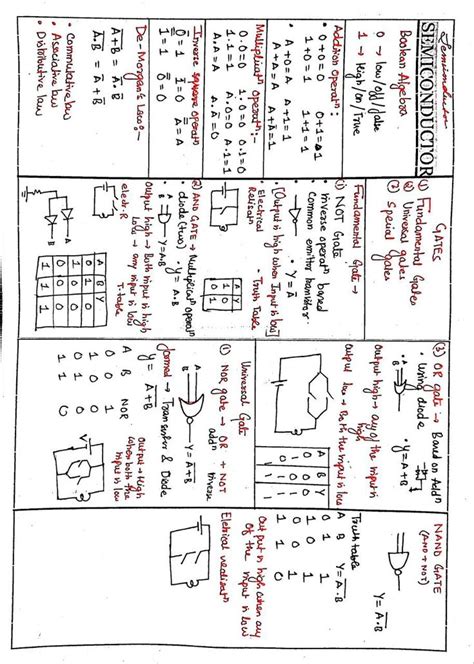 Semiconductor
SEMICONDUCTOR
Boolean Algebra
0 → low/off/false
1 → High/on/True
Addition operatⁿ:
• 0+0=0 0+1=1
1+0=1 1+1=1
A+0=A A+1=1
A+A=A A+Ā=1
Multiplicatⁿ Operatⁿ:-
0.0=0 1.0=0 0.1=0
1.1=1 A.0=0 A.1=1
A.A=A A.Ā=0
Inverse operatⁿ
0̄=1 A̿=A
1̄=0
De-Morgan's Law:-
A̅+̅B̅ = Ā.B̄
A̅.̅B̅ = Ā+B̄
• Commutative law
• Associative law
• Distributive law
GATES
(1) Fundamental Gates
(2) Universal gates
Special Gates
Fundamental Gate →
(1) NOT Gate
• Inverse operatⁿ based
Common emitter transistor
• Y=Ā
• [Output is high when Input is low]
Electrical Realisatⁿ
• Truth Table
A Y
0 1
1 0
2) AND GATE → Multiplicatⁿ operatⁿ
• diode (two) • Y=A.B
A
B
Output high → Both input is high
low → any input is low
T-table
A B Y
0 0 0
0 1 0
1 0 0
1 1 1
(3) OR gate → Based on Addⁿ
• Using diode
• A
• B
• Y=A+B
Output high → any of the input is high
Output low → Both the input is low
A B Y
0 0 0
0 1 1
1 0 1
1 1 1
Universal Gate
(1) NOR gate → OR + NOT
addⁿ inverse
Y=A̅+̅B̅
formed → Transistor & Diode
Y=A̅+̅B̅
A B NOR
0 0 1
0 1 0
1 0 0
1 1 0
Output → High when both the input is low
NAND GATE
(AND + NOT)
Y=A̅.̅B̅
Truth table
A B Y=A̅.̅B̅
0 0 1
0 1 1
1 0 1
1 1 0
Output is high when any of the input is low
Eletrical realisatⁿ